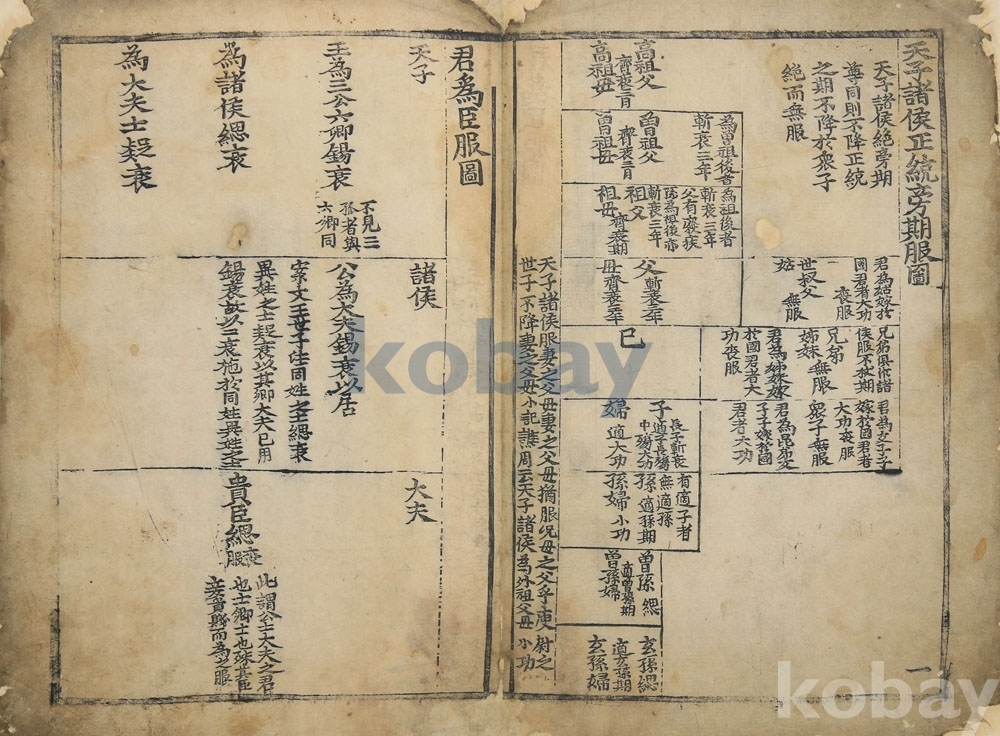 天子諸侯正統旁期服圖
天子諸侯絶旁期
尊同則不降正統
之期不降於衆子
絶而無服
高祖父
齊衰三月
高祖母
為曾祖後者
斬衰三年
曾祖父
齊衰三月
曾祖母
為祖後者
斬衰三年
父有廢疾
斬衰三年
祖父
齊衰期
祖母
君為姑嫁於
國君者大功
喪服
世叔父 無服
姑
父斬衰三年
母齊衰三年
兄弟俱作諸
侯服不杖期
兄弟
姊妹 無服
君為姊妹嫁
於國君者大
功喪服
己
君為女子子
嫁於國君者
大功喪服
衆子無服
子子嫁於國
君者大功
子
長子斬衰
中殤大功
婦 適大功
有適子者
無適孫
孫 適孫期
孫婦 小功
曾孫 緦
適曾孫期
曾孫婦
玄孫緦
適玄孫期
玄孫婦
天子諸侯服妻之父母妻之父母猶服况母之父乎庾蔚之
世子不降妻之父母小記譙周云天子諸侯為外祖父母小功
一
君為臣服圖
天子
王為三公六卿錫衰
不見三
孤者與
六卿同
為諸侯緦衰
為大夫士疑衰
諸侯
公為大夫錫衰以居
案文王世子注同姓之士緦衰
異姓之士疑衰以其卿大夫已用
錫衰故以二衰施於同姓異姓之士
大夫
貴臣緦
衰服
此謂公士大夫之君
也士卿士也殊其臣
妾貴賤而為之服
kobay
kobay